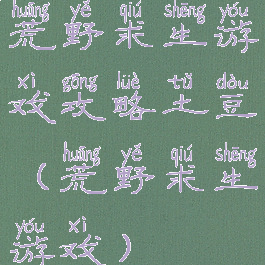 huāng yě qiú shēng yóu
荒野求生游
xì gōng lüè tǔ dòu
戏攻略土豆
huāng yě qiú shēng
（荒野求生
yóu xì
游戏）